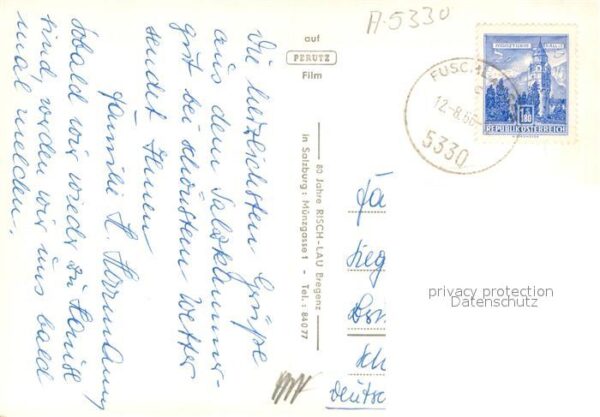 A-5330
auf
PERUTZ
Film
FUSCHL
12.-8.66
5330
1.80
REPUBLIK ÖSTERREICH
Die herzlichsten Grüße
aus dem Salzkammer-
gut bei schönstem Wetter
sendet Ihnen
Familie H.
Sobald wir wieder zu Hause
sind, werden wir uns bald
mal melden.
80 Jahre RISCH-LAU Bregenz
in Salzburg: Münzgasse 1 - Tel.: 84077
Fa
Sieg
Deutsc
privacy protection
Datenschutz